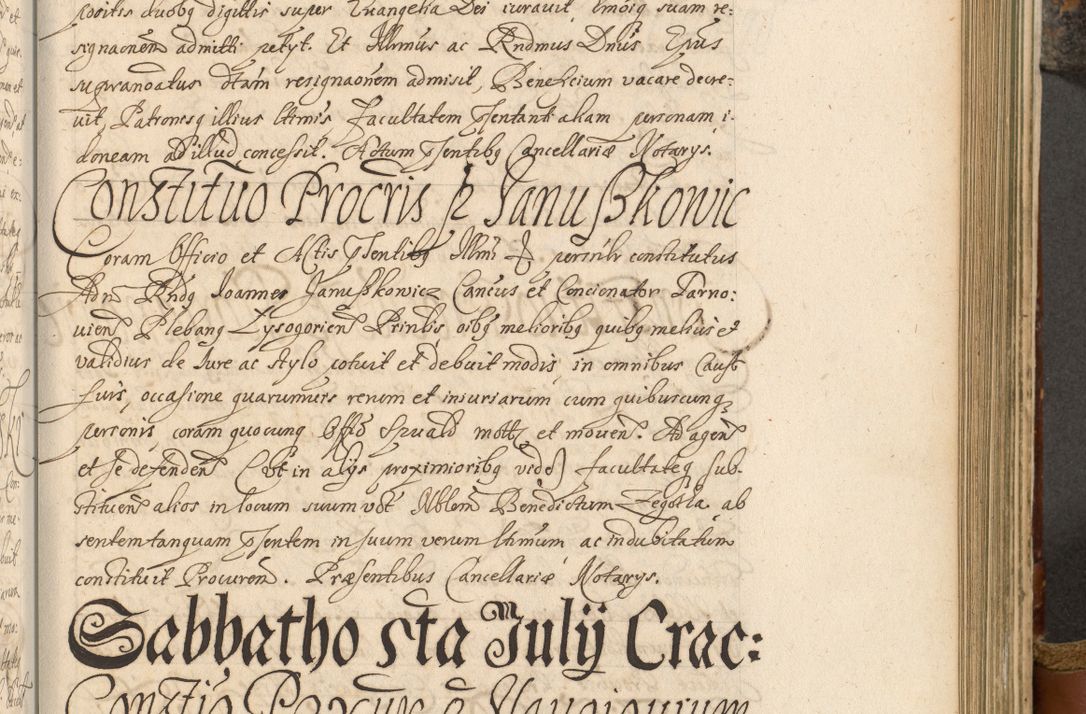 positis duobg digittis super Evangelia Dei iuravit, Emõsq suam re:
signaonem admitti petyt. Et Illmus ac Rndmus Dnus Epus
supranoatus dtam resignaonem admisit, Beneficium vacare decre:
vit, Patronesq illius ltimis facultatem pñtentandi aliam personam i:
doneam ad illud concessit. Actum pñtentibg Cancellariæ Notarys.
Constituo Procris p Januszkowic
Coram Officio et Actis pñtentibg Illmi personlr constitutus
Adm Rndg Joannes Januszkowicz Canëus et Concionator Tarno:
vien Plebang Lysogorien Prinbis oibg melioribg quibg melius et
validius de Jure ac stylo potuit et debuit modis, in omnibus Caus
suis, occasione quarumvis rerum et iniuriarum cum quibuscunq
personis, coram quocunq Offo Spuald mottis et moven. Ad agen
et se defenden (Vt in alys proximioribg vide) facultateq sub:
stituen alios in locum suum vdt Nblem Benedictum Zegotha ab
sentem tanquam pñtentem in suum verum lhmum, ac indubitatum
constituit Procuren. Præsentibus Cancellariæ Notarys.
Sabbatho sta Julij Crac:
Constio Procur p